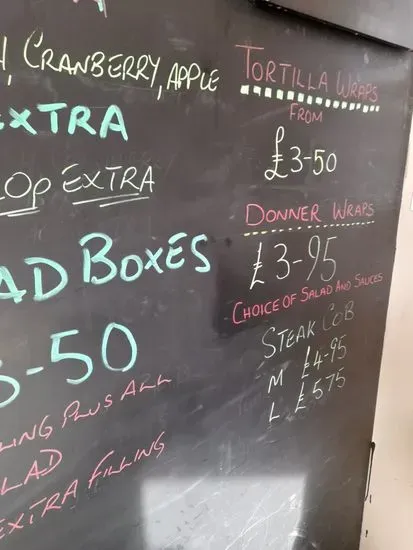 , CRANBERRY, APPLE
EXTRA
EXTRA
BOXES
-50
PLUS ALL
EXTRA FILLING
TORTILLA WRAPS
FROM
£3-50
DONNER WRAPS
£3-95
CHOICE OF SALAD AND SAUCES
STEAK COB
M £4-95
L £575